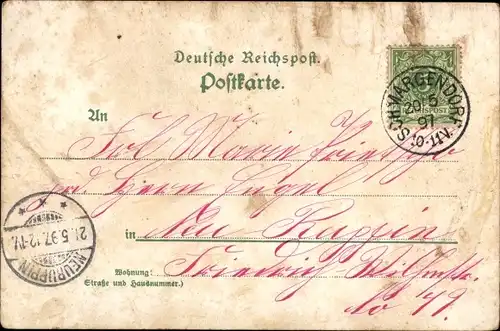 Deutsche Reichspost.
Postkarte.
SCHMARGENDORF
20 5
97
10-11V.
An
Frl. Marie
Herrn Engel
Neu Ruppin
in
Friedrich Wilhelmstr.
No 49
NEURUPPIN
21.5.97.12-1V.
Wohnung:
Straße und Hausnummer.)